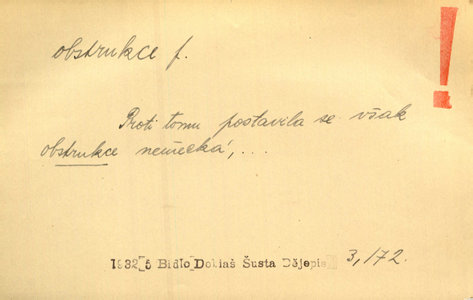 obstrukce f.
!
Proti tomu postavila se však
obstrukce německá, ...
Bidlo Dobiaš Šusta Dějepis 3, 172.